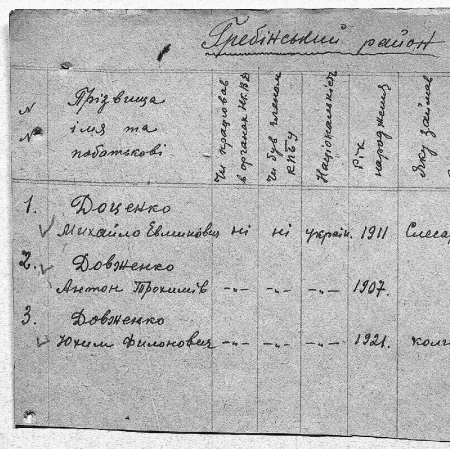 Гребінківський район
N N
Прізвища
імя та
побатькові
Чи працював
в органах НКВД
Чи був членом
КПБУ
Національність
Рік
народження
Яку займав
1. Доценко
Михайло Евминович ні ні україн. 1911 Слесар
2. Довженко
Антон Трохимів -"- -"- -"- 1907.
3. Довженко
Юхим Филонович -"- -"- -"- 1921. колг